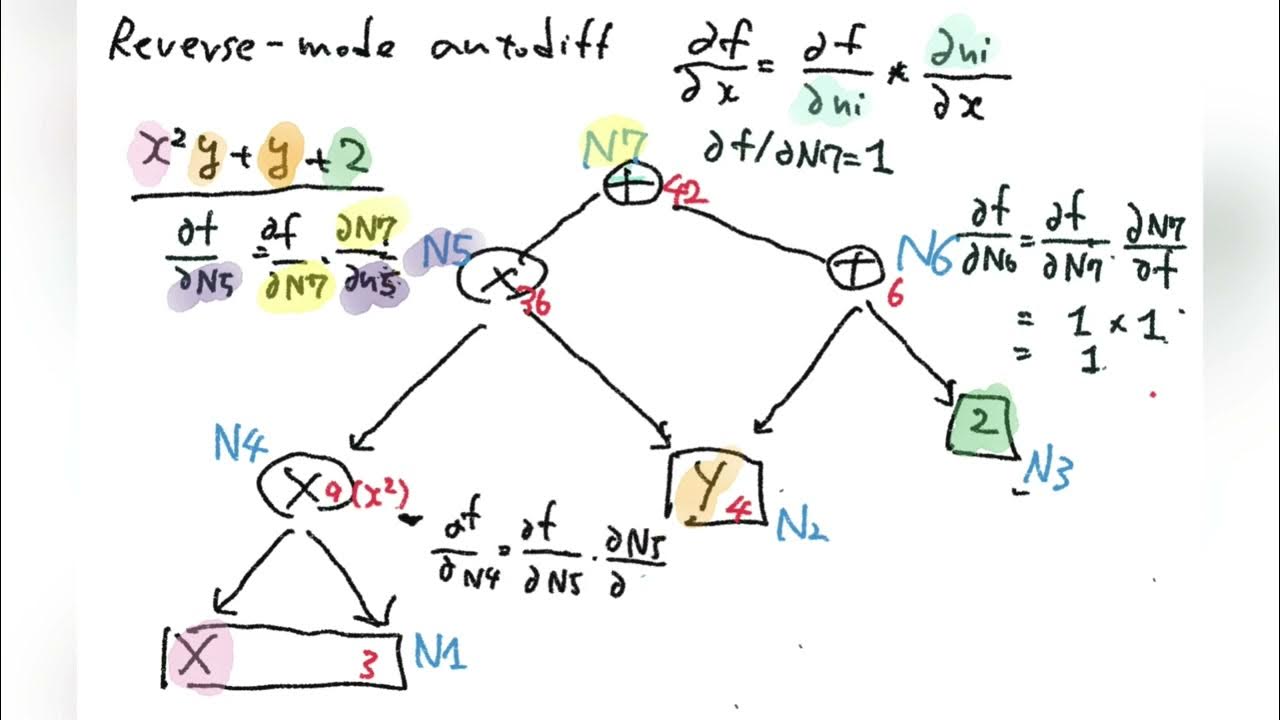 Reverse-mode autodiff
∂f/∂x = ∂f/∂ni * ∂ni/∂x
x²y + y + 2
∂f/∂N5 = ∂f/∂N7 · ∂N7/∂n5
N7
+ 42
∂f/∂N7=1
N5
× 36
N6
+ 6
∂f/∂N6 = ∂f/∂N7 · ∂N7/∂f
= 1 × 1
= 1
N4
× 9 (x²)
∂f/∂N4 = ∂f/∂N5 · ∂N5/∂
Y 4
N2
2
N3
X 3
N1